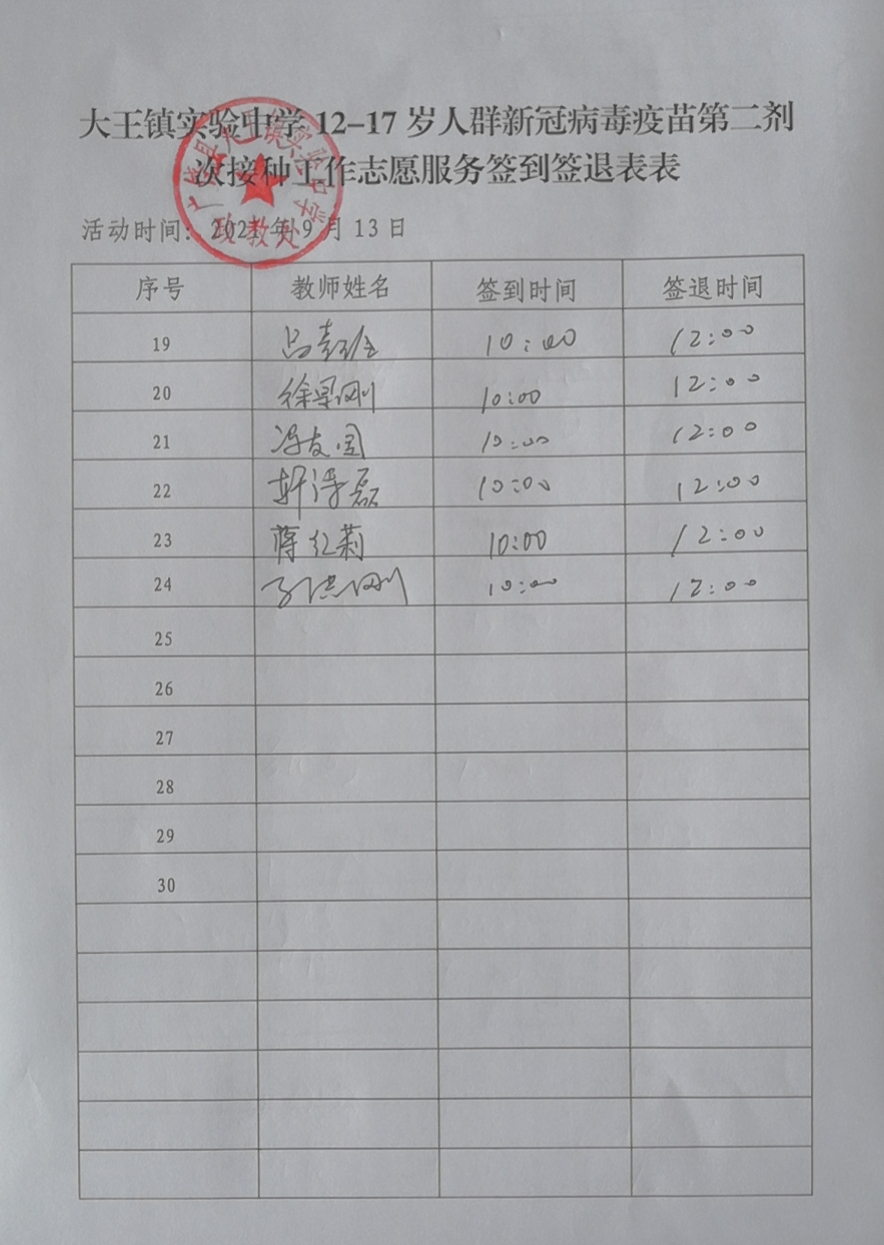 大王镇实验中学12-17岁人群新冠病毒疫苗第二剂
次接种工作志愿服务签到签退表表
广饶县大王镇实验中学
政教处
活动时间：2021年9月13日
序号 教师姓名 签到时间 签退时间
19 10:00 12:00
20 徐 刚 10:00 12:00
21 冯友国 10:00 12:00
22 磊 10:00 12:00
23 蒋红莉 10:00 12:00
24 刚 10:00 12:00
25
26
27
28
29
30